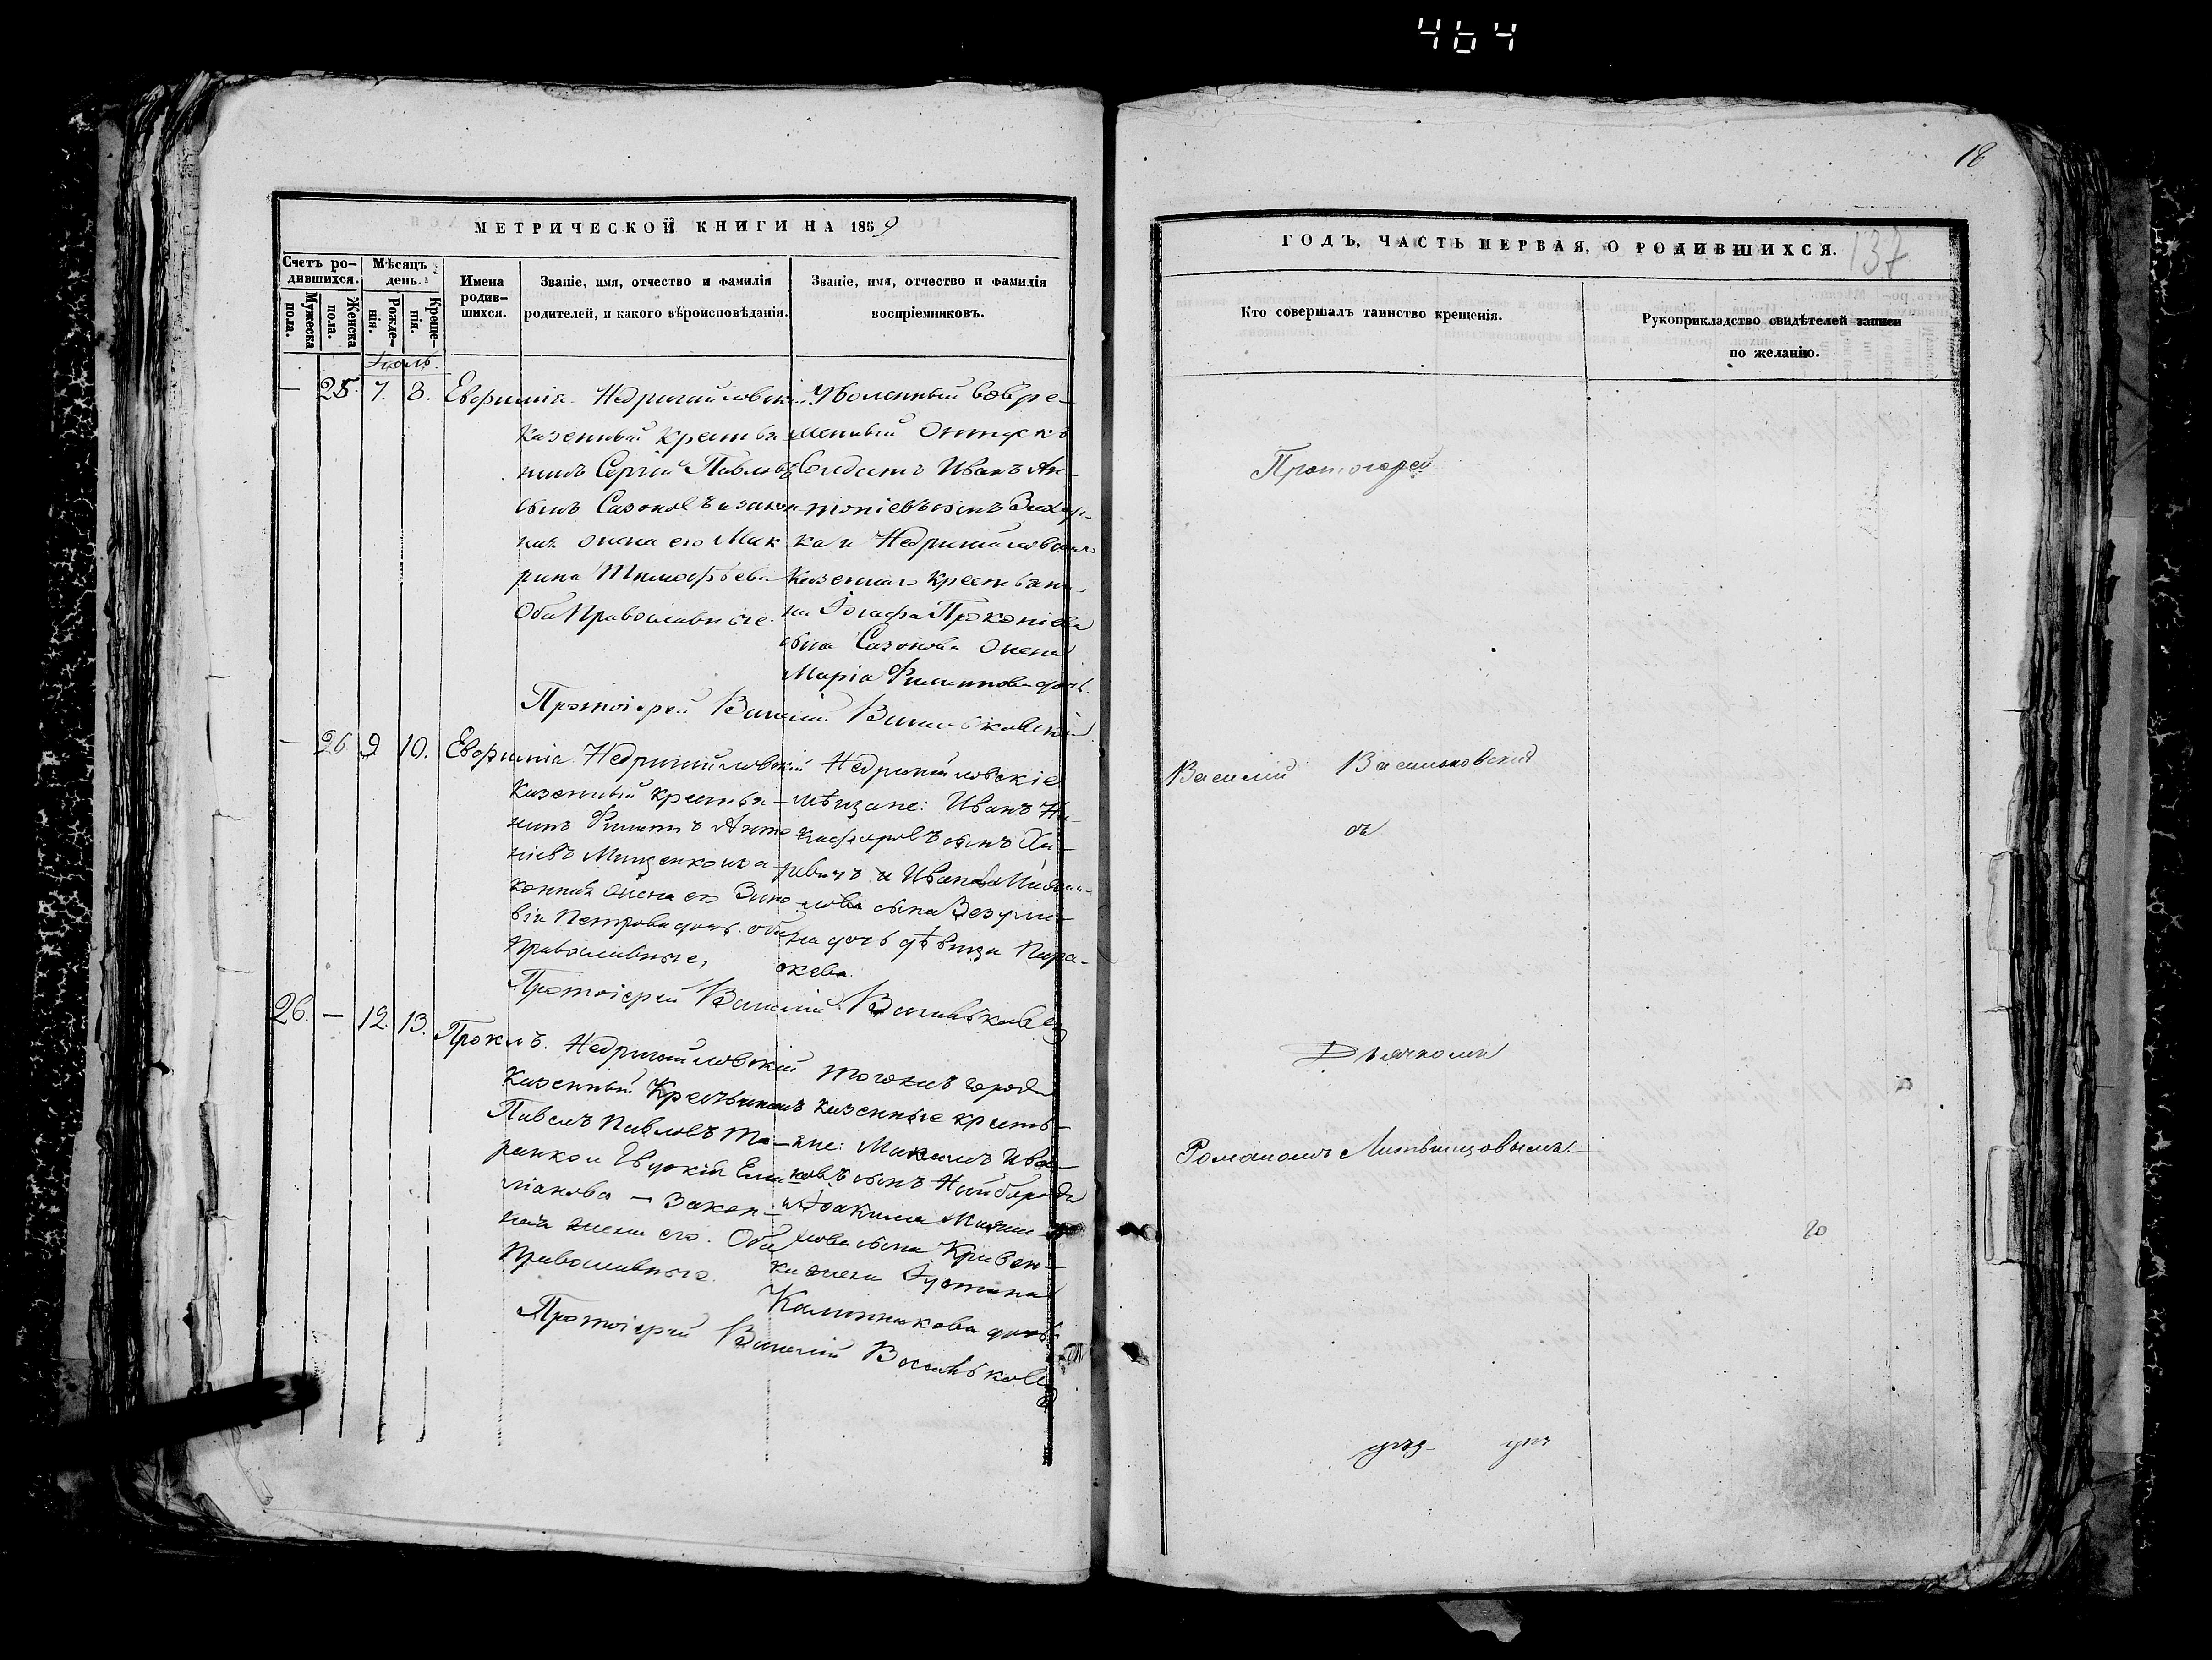 464
18
137
МЕТРИЧЕСКОЙ КНИГИ НА 1859
Счетъ родившихся.
Мужеска пола.
Женска пола.
Мѣсяцъ день.
Рожденія.
Крещенія.
Имена родившихся.
Званіе, имя, отчество и фамилія родителей, и какого вѣроисповѣданія.
Званіе, имя, отчество и фамилія воспріемниковъ.
Іюль.
— 25. 7. 8. Евфимія
Недригайловскій
казенный крестья-
нинъ Сергій Павловъ
сынъ Сазоновъ и закон-
ная жена его Мак
рина Тимофѣева
Оба Православные.
Уволенный вовре-
менный Отпускъ
Солдатъ Иванъ Ан-
тоніевъ сынъ
ка и Недригайловскаго
Казеннаго крестьяни-
на Іосафа Прокопіева
сына Сазонова жена
Марія Филиппова дочь.
Протоіерей Василій Васильковскій
— 26 9 10. Евфимія
Недригайловскій
Казенный крестья-
нинъ Филиппъ Анто
ніевъ Мищенко и за-
конная жена его Зино
вія Петрова дочь. оба
Православные,
Недригайловскіе
мѣщане: Иванъ Ни-
кифоровъ сынъ
и Ивана
сына
на дочь дѣвица Пара-
скева.
Протоіерей Василій Васильковскій
26. — 12. 13. Проклъ.
Недригайловскій
Казенный Крестьянинъ
Павелъ Павловъ Та-
ранко и Евдокія Еми
ліанова — Закон-
ная жена его. Оба
Православные
тогожъ города
казенные кресть-
яне: Максимъ Ива-
новъ сынъ Найборода
и Іоакима
лова сына Кривен-
ка жена Іустина
Калинникова дочь
Протоіерей Василій Васильковскій
ГОДЪ, ЧАСТЬ ПЕРВАЯ, О РОДИВШИХСЯ.
Кто совершалъ таинство крещенія.
Рукоприкладство свидѣтелей записи по желанію.
Протоіерей
Василій Васильковскій
съ
Дьячкомъ
Романомъ Литвинцовымъ.